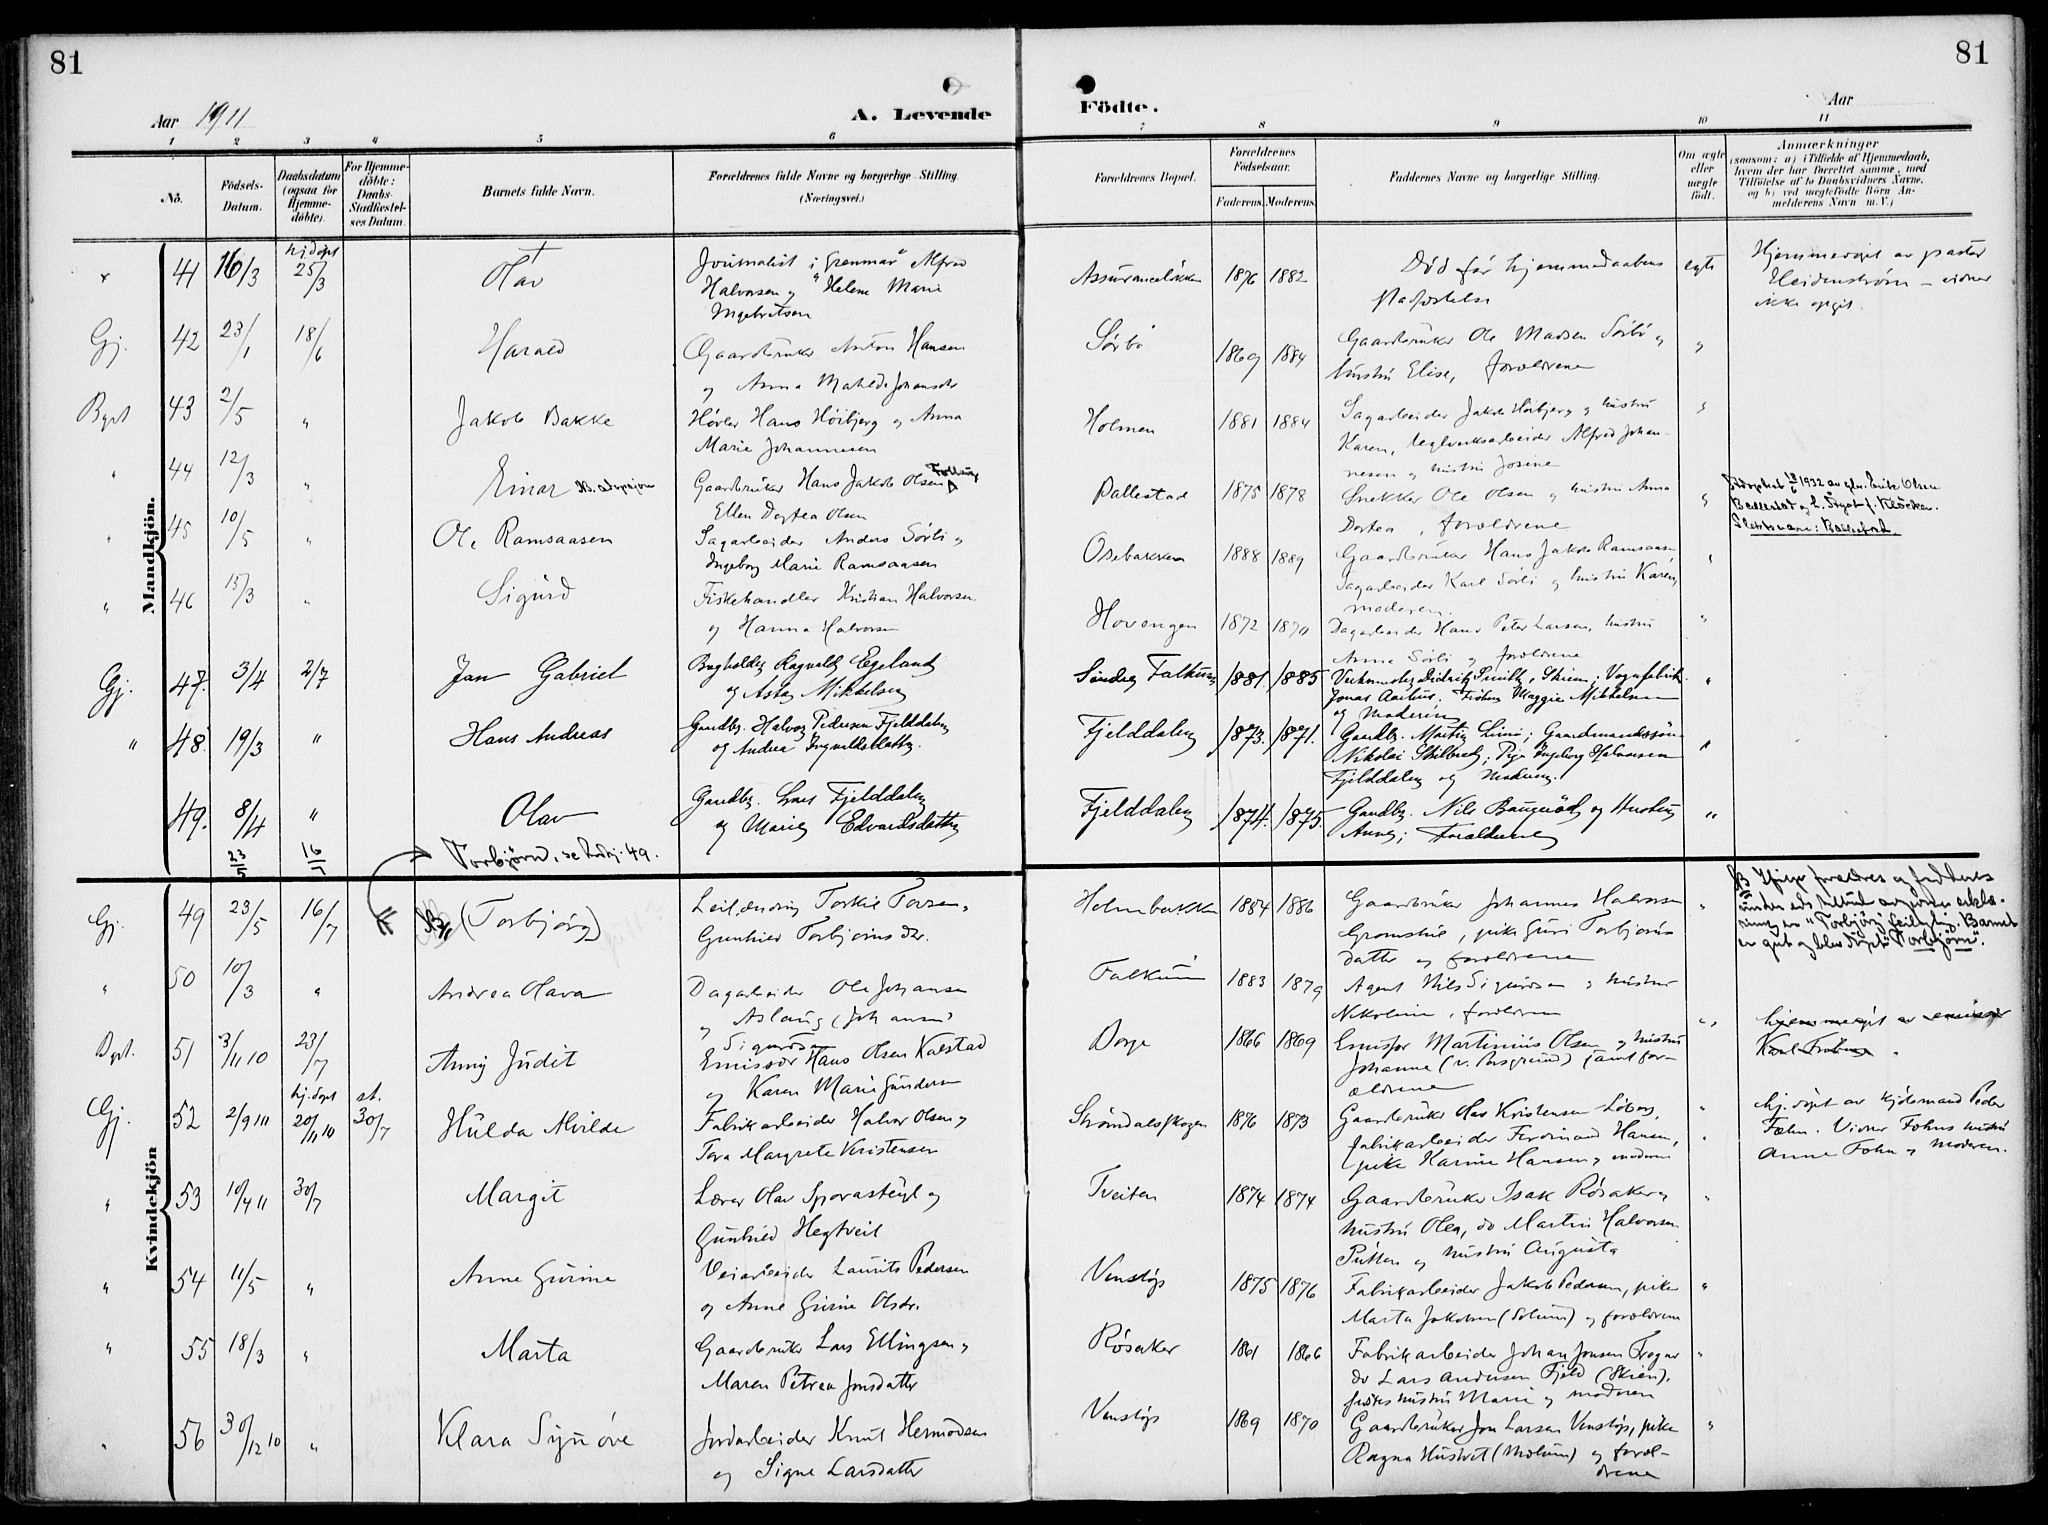 81
81
Aar 1911
A. Levende
Födte.
Aar
1 2 3 4 5 6 7 8 9 10 11
No.
Födsels-Datum.
Daabsdatum (ogsaa for Hjemme-döbte).
For Hjemme-döbte: Daabs-Stadfæstel-ses Datum.
Barnets fulde Navn.
Forældrenes fulde Navne og borgerlige Stilling. (Næringsvei.)
Forældrenes Bopæl.
Forældrenes Födselsaar.
Faderens. Moderens.
Faddernes Navne og borgerlige Stilling.
Om ægte eller uægte födt.
Anmærkninger
(saasom: a) i Tilfælde af Hjemmedaab, hvem der har forrettet samme, med Tilföielse af to Daabsvidners Navne, og b) ved uægtefödte Börn Anmelderens Navn m. V.)
Mandkjön.
41 16/3 hj.döpt 25/3 Olav
Journalist i "Grenmar" Alfred
Halvorsen og Helene Marie
Ingebretsen
1876 1882
Död för hjemmedaabens
stadfæstelse
egte
Hjemmedöpt av pastor
Heidenstrøm – vidner
ikke opgit.
Gj. 42 23/1 18/6 Harald
Gaardbruker Anton Hansen
og Anna Matilde
Sörbö 1869 1884
Gaardbruker Ole Madsen Sörbö og
hustru Elise, forældrene
"
43 2/5 " Jakob Bakke
Hövler Hans Höibjerg og Anna
Marie Johannesen
Holmen 1881 1884
Sagarbeider Jakob Höibjerg og hustru
Karen, teglverksarbeider Alfred Johan-
nesen og hustru Josine
"
" 44 12/3 " Einar NB. adopsjon
Gaardbruker Hans Jakob Olsen
Ellen Dortea Olsen
Ballestad 1875 1878
Snekker Ole Olsen og hustru Anna
Dortea, forældrene
"
" 45 10/5 " Ole Ramsaasen
Sagarbeider Anders Sörli og
Ingeborg Marie Ramsaasen
Osebakken 1888 1889
Gaardbruker Hans Jakob Ramsaasen
Sagarbeider Karl Sörli og hustru Karen,
moderen.
"
" 46 15/3 " Sigurd
Fiskehandler Kristian Halvorsen
og Hanna Halvorsen
Hovengen 1872 1870
Dagarbeider Hans Peter Larsen, hustru
Anna Sörli og forældrene
"
Gj. 47. 3/4 2/7 Jan Gabriel
Bogholder Ragnvald Egeland
og Asta Mikkelsen
Söndre Falkum 1881. 1885.
Didrik Smith, Skien;
Jonas Aarhus, Fröken Maggie Mikkelsen
og Moderen
"
" 48. 19/3 " Hans Andreas
Gaardbr. Halvor Pedersen Fjelddalen
og Andrea Ingvaldsdatter.
Fjelddalen 1873. 1871.
Gaardbr. Martin Limi; Gaardmandssön
Nikolai Skilbred; Pige Ingeborg
Fjelddalen og Moderen.
"
49. 8/4 " Olav
Gaardbr. Lars Fjelddalen
og Maria Edvardsdatter
Fjelddalen 1874. 1875.
Gaardbr. Nils Baugeröd og Hustru
Anne; Forældrene
"
23/5 16/7 Torbjörn, se 49.
Kvindekjön
Gj. 49 23/5 16/7 NB (Torbjörg)
Leilending Torkil Torsen,
Gunhild Torbjörns dtr.
Holmbakken 1884 1886
Gaardbruker Johannes Halvorsen
Gromstul, pike Guri Torbjörns
datter og forældrene
"
NB Ifölge forældres og fadderes
under eds tilbud avgivne erklæ-
ring er "Torbjörg" feilskrift. Barnet
er gut og blev döpt "Torbjörn".
" 50 10/3 " Andrea Olava
Dagarbeider Ole Johansen
og Aslaug (Johansen)
Sigurdsen
Falkum 1883 1879
Agent Nils Sigurdsen og hustru
Nikoline, forældrene
51 3/11 10 23/7 Anny Judit
Emissær Hans Olsen Kalstad
og Karen Marie Gundersen
Borge 1866 1869
Emissær Martinius Olsen og hustru
Johanne (v. Porsgrund) samt for-
ældrene
"
hjemmedöpt av emissær
Gj. 52 2/9 10 hj. döpt 20/11 10 st. 30/7 Hulda Alvilde
Fabrikarbeider Halvor Olsen og
Tora Margrete Kristensen
Strömdalsskogen 1876 1873
Gaardbruker Olav Kristensen
fabrikarbeider Ferdinand Hansen,
pike Karine Hansen og moderen
"
hj. döpt av kjöbmand Peder
Fohn. Vidner Fohns hustru
Anne Fohn og moderen.
" 53 10/4 11 30/7 Margit
Lærer Olav Sporasteyl og
Gunhild Hegtveit
Tveiten 1874 1874
Gaardbruker Isak Rösaker og
hustru Olea, do Martin Halvorsen
Putten og hustru Augusta
"
" 54 11/5 " Anne Gurine
Veiarbeider Laurits Pedersen
og Anne Gurine Olsdr.
Venstöp 1875 1876
Fabrikarbeider Jakob Pedersen, pike
Marta Jakobsen (Solum) og forældrene
"
" 55 18/3 " Marta
Gaardbruker Lars Ellingsen og
Maren Petrea Jonsdatter
Rösaker 1861 1866
Fabrikarbeider Johan Jonsen
do Lars Andersen Fjeld (Skien),
hustru Marie og moderen
"
" 56 30/12 10 " Klara Synöve
Jordarbeider Knut Hermodsen
og Signe Larsdatter
Venstöp 1869 1870
Gaardbruker Jon Larsen Venstöp, pike
Ragna Hustvet (Melum) og foræl-
drene
"